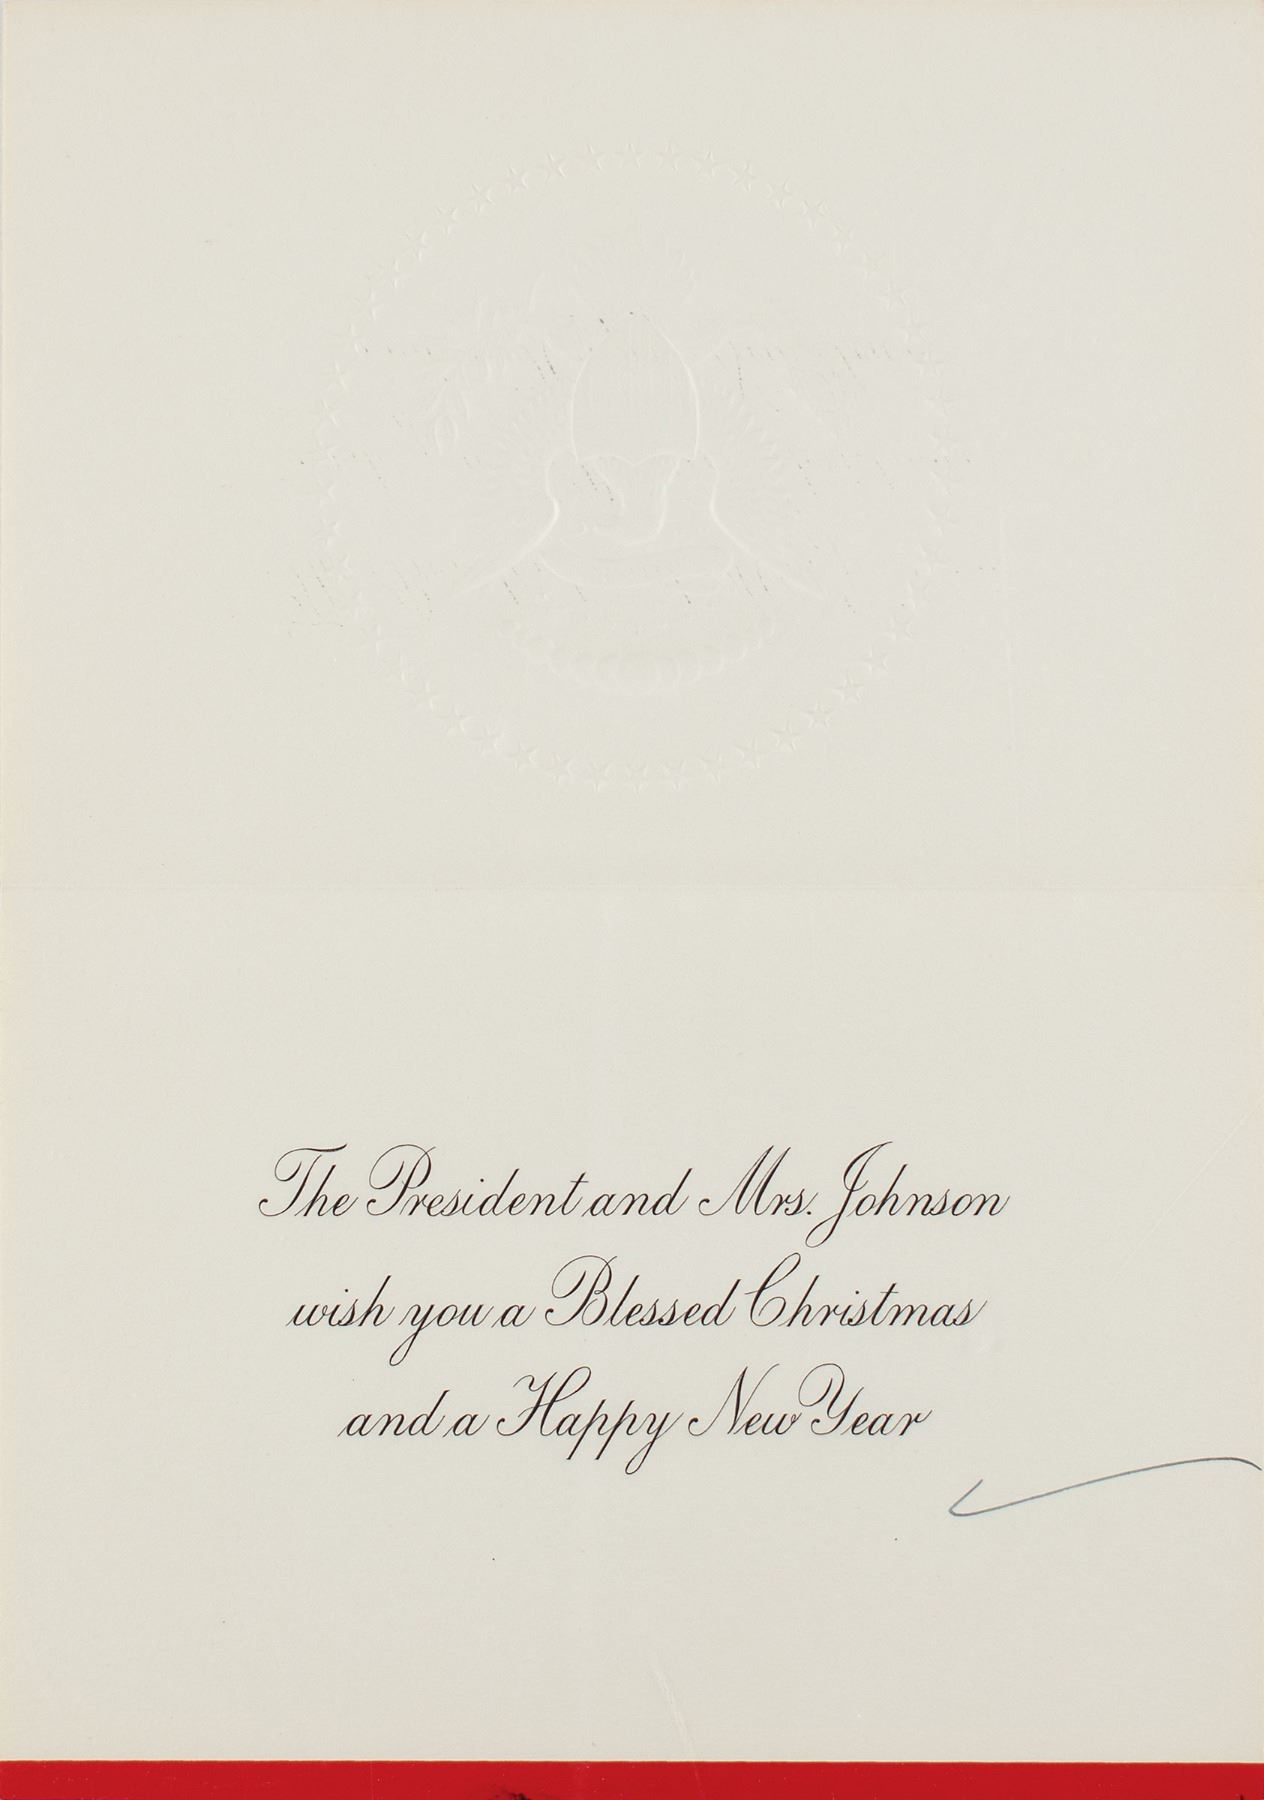 The President and Mrs. Johnson
wish you a Blessed Christmas
and a Happy New Year